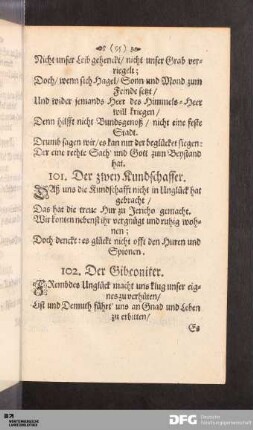 (55)
Nicht unser Leib gehenckt/ nicht unser Grab ver-
riegelt;
Doch/ wenn sich Hagel/ Sonn und Mond zum
Feinde setzt/
Und wider jemands Heer des Himmels-Heer
will kriegen/
Denn hilfft nicht Bundsgenoß/ nicht eine feste
Stadt.
Drumb sagen wir/ es kan nur der beglücket siegen:
Der eine rechte Sach/ und Gott zum Beystand
hat.
101. Der zwey Kundschaffer.
DAß uns die Kundschafft nicht in Unglück hat
gebracht/
Das hat die treue Hur zu Jericho gemacht.
Wir konten nebenst ihr vergnügt und ruhig woh-
nen;
Doch denckt: es glückt nicht offt den Huren und
Spionen.
102. Der Gibeoniter.
FRembdes Unglück macht uns klug unser eig-
nes zuverhüten/
List und Demuth führt uns an Gnad und Leben
zu erbitten/
Es
DFG